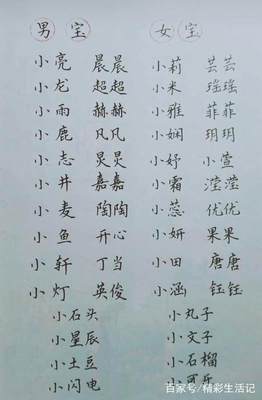 男宝 女宝
小亮 晨晨 小莉 芸芸
小龙 超超 小米 瑶瑶
小雨 赫赫 小雅 菲菲
小鹿 凡凡 小娴 玥玥
小志 炅炅 小妤 小萱
小井 嘉嘉 小霜 滢滢
小麦 陶陶 小蕊 优优
小鱼 开心 小妍 果果
小轩 丁当 小田 唐唐
小灯 英俊 小涵 钰钰
小石头 小丸子
小星辰 小文子
小土豆 小石榴
小闪电 小可乐
百家号/精彩生活记